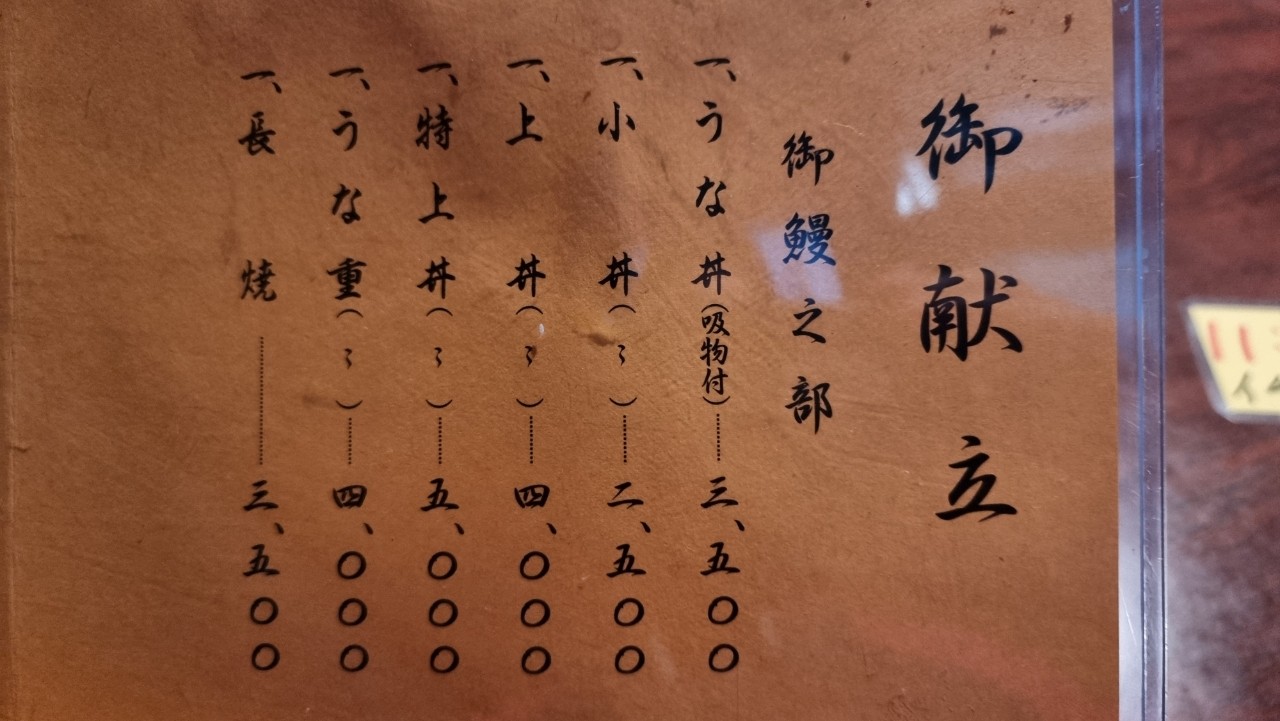 御献立
御鰻之部
一、うな丼(吸物付)……三、五〇〇
一、小丼(〻)……二、五〇〇
一、上丼(〻)……四、〇〇〇
一、特上丼(〻)……五、〇〇〇
一、うな重(〻)……四、〇〇〇
一、長焼……三、五〇〇
11